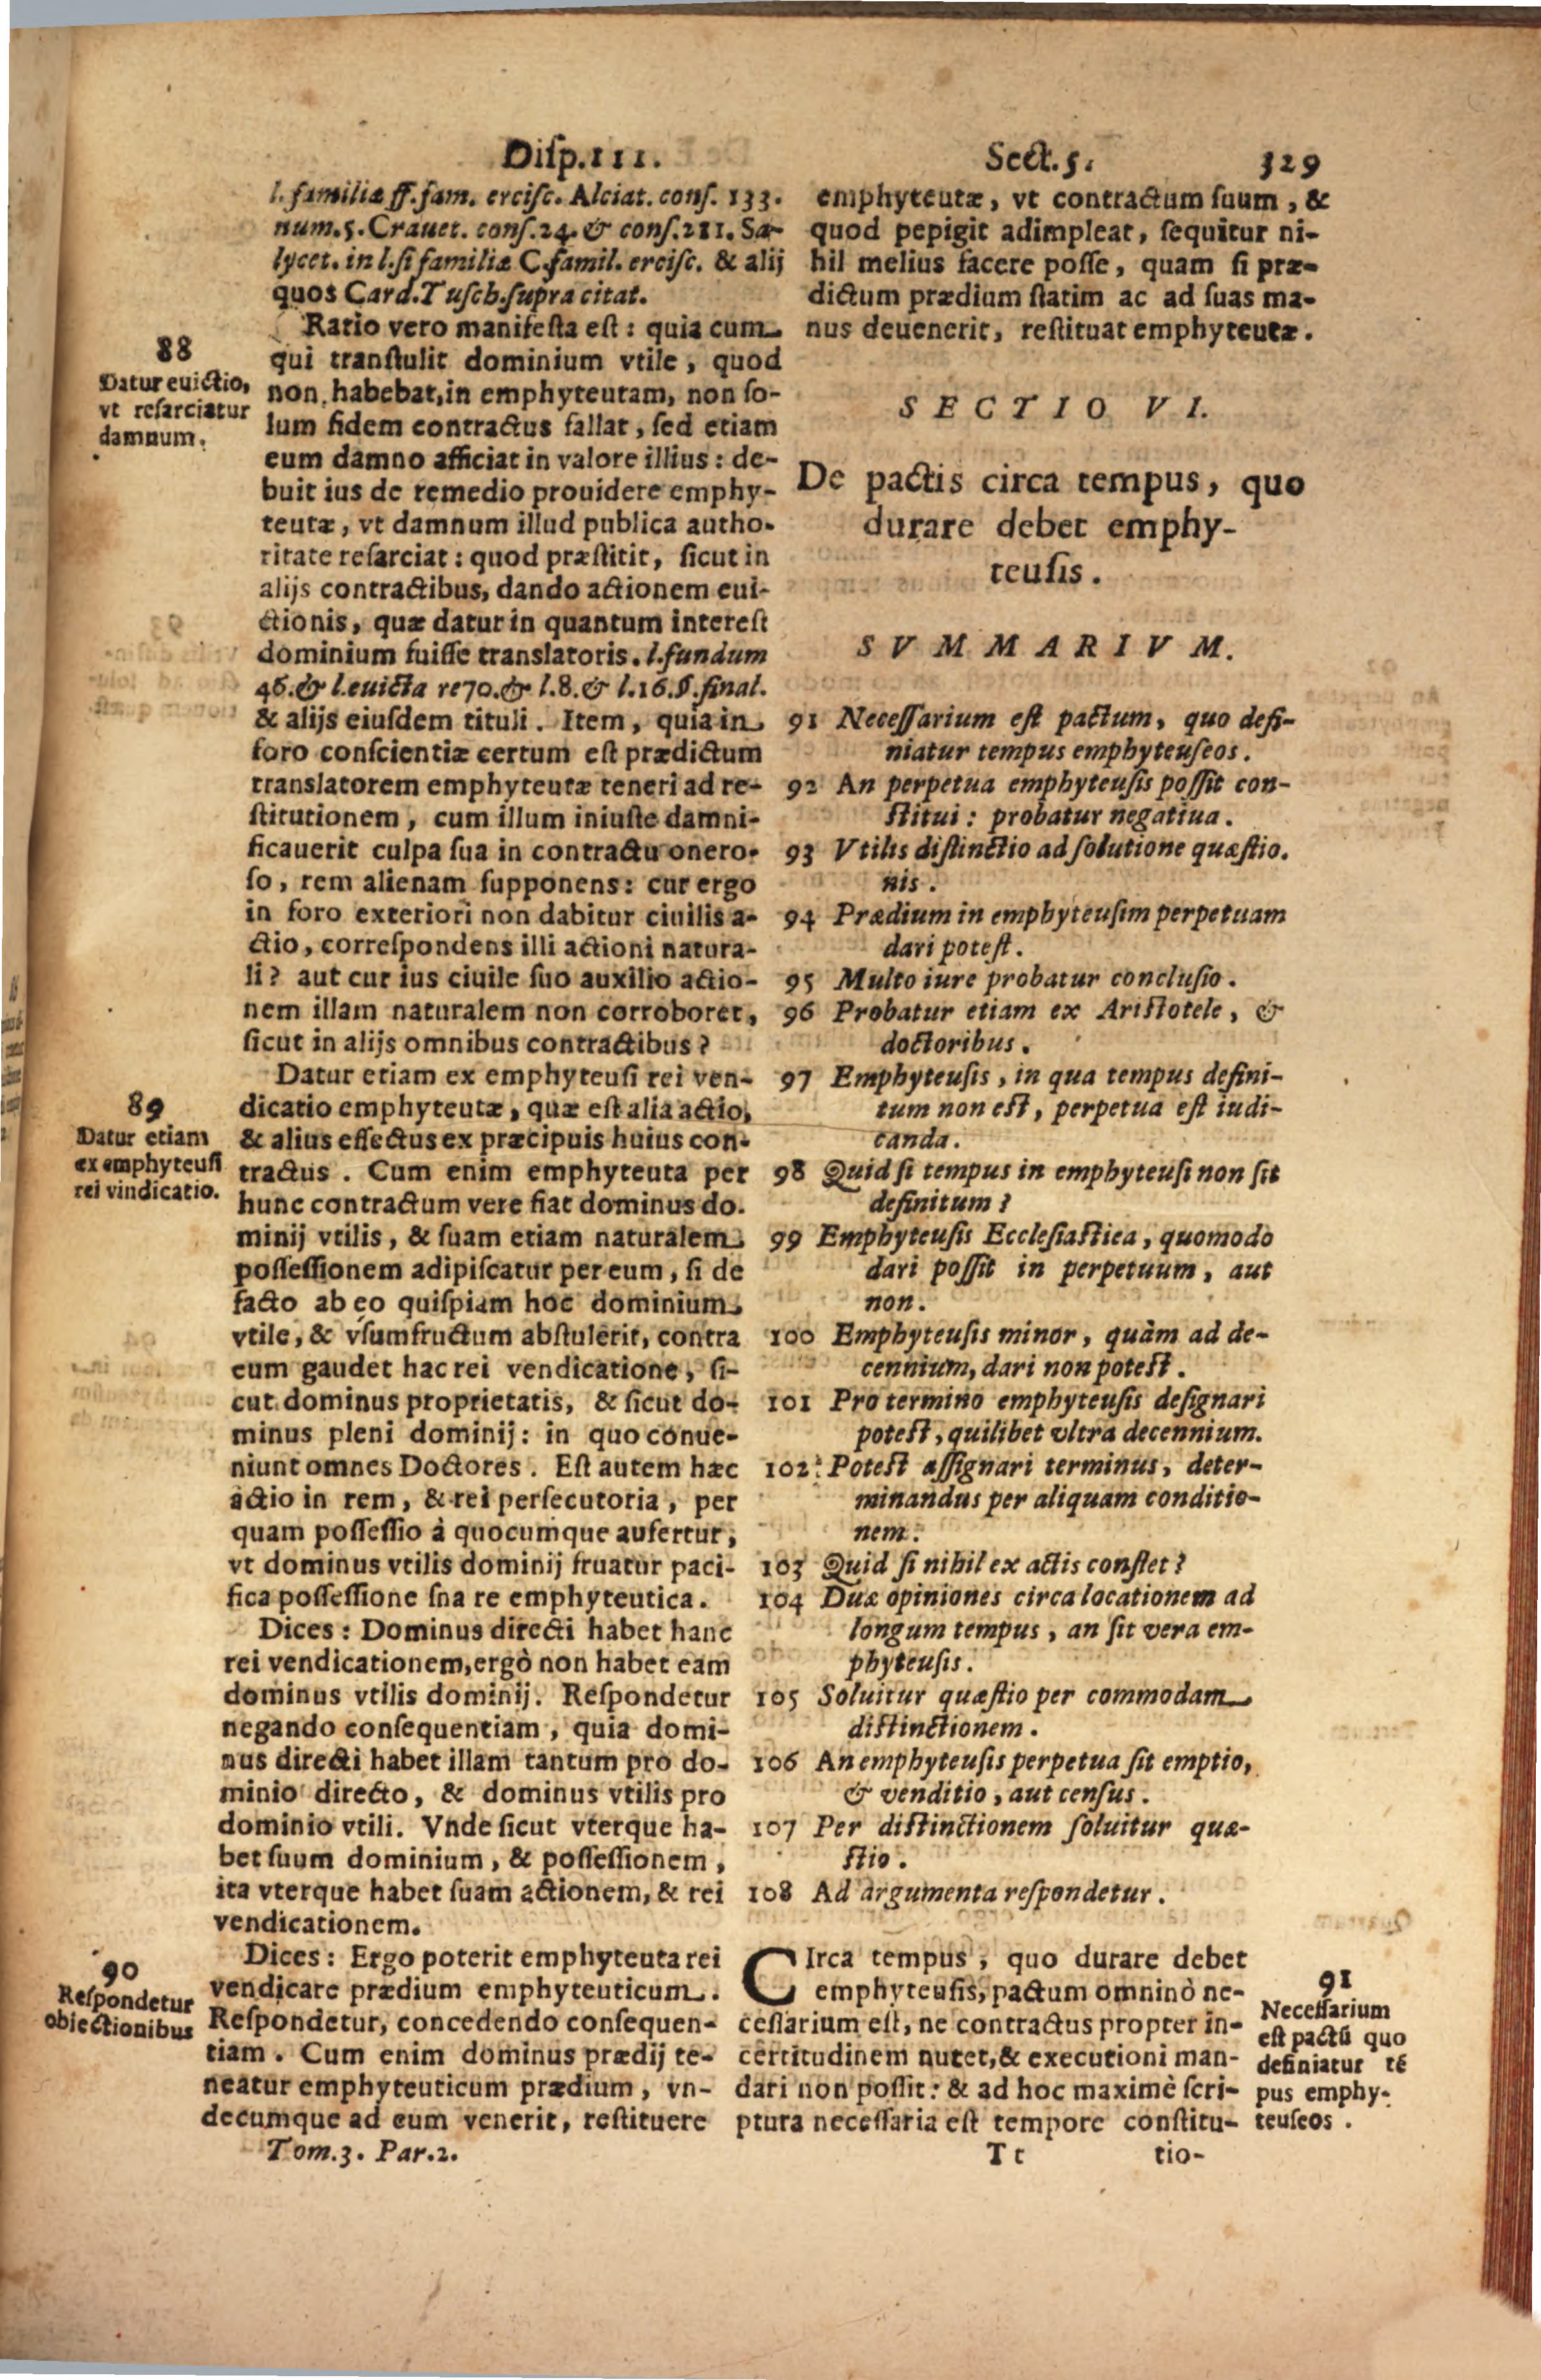 Disp.III. Sect.5. 329
l.familiæ ff.fam. ercisc. Alciat. cons. 133.
num.5. Crauet. cons.24. & cons.211. Sa-
lycet. in l.si familiæ C.famil. ercisc. & alij
quos Card.Tusch.supra citat.
88
Datur euictio,
vt resarciatur
damnum.
Ratio vero manifesta est : quia cum
qui transtulit dominium vtile, quod
non habebat, in emphyteutam, non so-
lum fidem contractus fallat, sed etiam
eum damno afficiat in valore illius : de-
buit ius de remedio prouidere emphy-
teutæ, vt damnum illud publica autho-
ritate resarciat : quod præstitit, sicut in
alijs contractibus, dando actionem eui-
ctionis, quæ datur in quantum interest
dominium fuisse translatoris. l.fundum
46.& l.euicta re70.& l.8.& l.16.§.final.
& alijs eiusdem tituli. Item, quia in
foro conscientiæ certum est prædictum
translatorem emphyteutæ teneri ad re-
stitutionem, cum illum iniuste damni-
ficauerit culpa sua in contractu onero-
so, rem alienam supponens: cur ergo
in foro exteriori non dabitur ciuilis a-
ctio, correspondens illi actioni natura-
li? aut cur ius ciuile suo auxilio actio-
nem illam naturalem non corroboret,
sicut in alijs omnibus contractibus?
89
Datur etiam
ex emphyteusi
rei vindicatio.
Datur etiam ex emphyteusi rei ven-
dicatio emphyteutæ, quæ est alia actio,
& alius effectus ex præcipuis huius con-
tractus. Cum enim emphyteuta per
hunc contractum vere fiat dominus do.
minij vtilis, & suam etiam naturalem
possessionem adipiscatur per eum, si de
facto ab eo quispiam hoc dominium
vtile, & vsumfructum abstulerit, contra
eum gaudet hac rei vendicatione, si-
cut dominus proprietatis, & sicut do-
minus pleni dominij: in quo conue-
niunt omnes Doctores. Est autem hæc
actio in rem, & rei persecutoria, per
quam possessio à quocumque aufertur,
vt dominus vtilis dominij fruatur paci-
fica possessione sna re emphyteutica.
Dices : Dominus directi habet hanc
rei vendicationem,ergò non habet eam
dominus vtilis dominij. Respondetur
negando consequentiam, quia domi-
nus directi habet illam tantum pro do-
minio directo, & dominus vtilis pro
dominio vtili. Vnde sicut vterque ha-
bet suum dominium, & possessionem,
ita vterque habet suam actionem, & rei
vendicationem.
90
Respondetur
obiectionibus
Dices: Ergo poterit emphyteuta rei
vendicare prædium emphyteuticum.
Respondetur, concedendo consequen-
tiam. Cum enim dominus prædij te-
neatur emphyteuticum prædium, vn-
decumque ad eum venerit, restituere
Tom.3. Par.2.
emphyteutæ, vt contractum suum, &
quod pepigit adimpleat, sequitur ni-
hil melius facere posse, quam si præ-
dictum prædium statim ac ad suas ma-
nus deuenerit, restituat emphyteutæ.
SECTIO VI.
De pactis circa tempus, quo
durare debet emphy-
teusis.
SVMMARIVM.
91 Necessarium est pactum, quo defi-
niatur tempus emphyteuseos.
92 An perpetua emphyteusis possit con-
stitui : probatur negatiua.
93 Vtilis distinctio ad solutione quæstio.
nis.
94 Prædium in emphyteusim perpetuam
dari potest.
95 Multo iure probatur conclusio.
96 Probatur etiam ex Aristotele, &
doctoribus.
97 Emphyteusis, in qua tempus defini-
tum non est, perpetua est iudi-
canda.
98 Quid si tempus in emphyteusi non sit
definitum?
99 Emphyteusis Ecclesiastica, quomodo
dari possit in perpetuum, aut
non.
100 Emphyteusis minor, quàm ad de-
cennium, dari non potest.
101 Pro termino emphyteusis designari
potest, quilibet vltra decennium.
102 Potest assignari terminus, deter-
minandus per aliquam conditio-
nem.
103 Quid si nihil ex actis constet?
104 Duæ opiniones circa locationem ad
longum tempus, an sit vera em-
phyteusis.
105 Soluitur quæstio per commodam
distinctionem.
106 An emphyteusis perpetua sit emptio,
& venditio, aut census.
107 Per distinctionem soluitur quæ-
stio.
108 Ad argumenta respondetur.
CIrca tempus, quo durare debet
emphyteusis, pactum omninò ne-
cessarium est, ne contractus propter in-
certitudinem nutet, & executioni man-
dari non possit : & ad hoc maximè scri-
ptura necessaria est tempore constitu-
91
Necessarium
est pactũ quo
definiatur tẽ
pus emphy-
teuseos.
Tt tio-